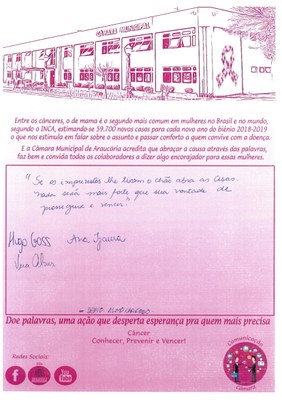 CÂMARA MUNICIPAL
Entre os cânceres, o de mama é o segundo mais comum em mulheres no Brasil e no mundo,
segundo o INCA, estimando-se 59.700 novos casos para cada novo ano do biênio 2018-2019
o que nos estimula em falar sobre o assunto e passar conforto a quem convive com a doença.
E a Câmara Municipal de Araucária acredita que abraçar a causa através das palavras,
faz bem e convida todos os colaboradores a dizer algo encorajador para essas mulheres.
"Se os imprevistos lhe tiram o chão abra as asas.
nada será mais forte que sua vontade de
prosseguir e vencer."
Hugo Goss Ana
Doe palavras, uma ação que desperta esperança pra quem mais precisa
Câncer
Conhecer, Prevenir e Vencer!
Redes Sociais:
You
Tube
Comunicação
Câmara